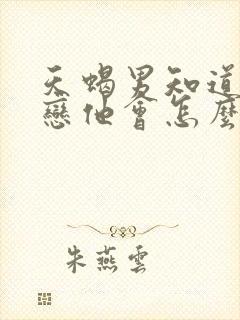 天蝎男知道
戀他會怎麼
朱燕雲